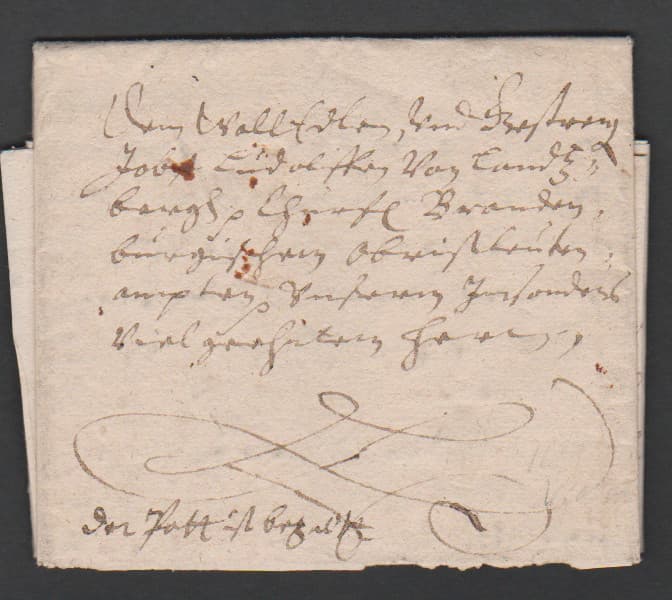 Dem WollEdlen, Und Gestreng
Jobst Lüdolffen Von Landtß-
bergh, Churfl Branden,
burgischem Obristleuten,
ampten, Unserm Insonders
Viel geehrtem Herrn,
der Post ist bezahlt